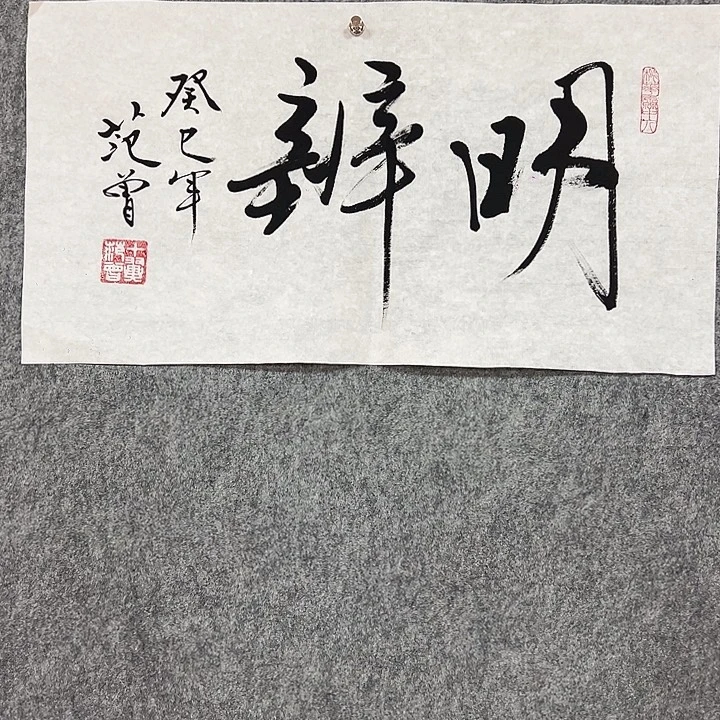 明辨
癸巳年
范曾